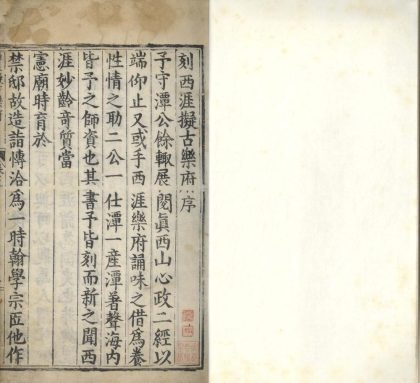 刻西涯擬古樂府序
予守潭公餘輒展閱眞西山心政二經以
端仰止又或手西涯樂府誦味之借爲養
性情之助二公一仕潭一産潭著聲海内
皆予之師資也其書予皆刻而新之聞西
涯妙齡奇質當
憲廟時育於
禁邸故造詣博洽爲一時翰學宗匠他作